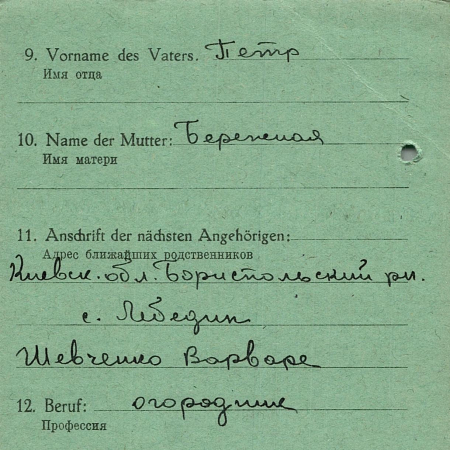 9. Vorname des Vaters. Петр
Имя отца
10. Name der Mutter: Бережная
Имя матери
11. Anschrift der nächsten Angehörigen:
Адрес ближайших родственников
Киевск. обл. Бориспольский рн.
с. Лебедин
Шевченко Варваре
12. Beruf: огородник
Профессия